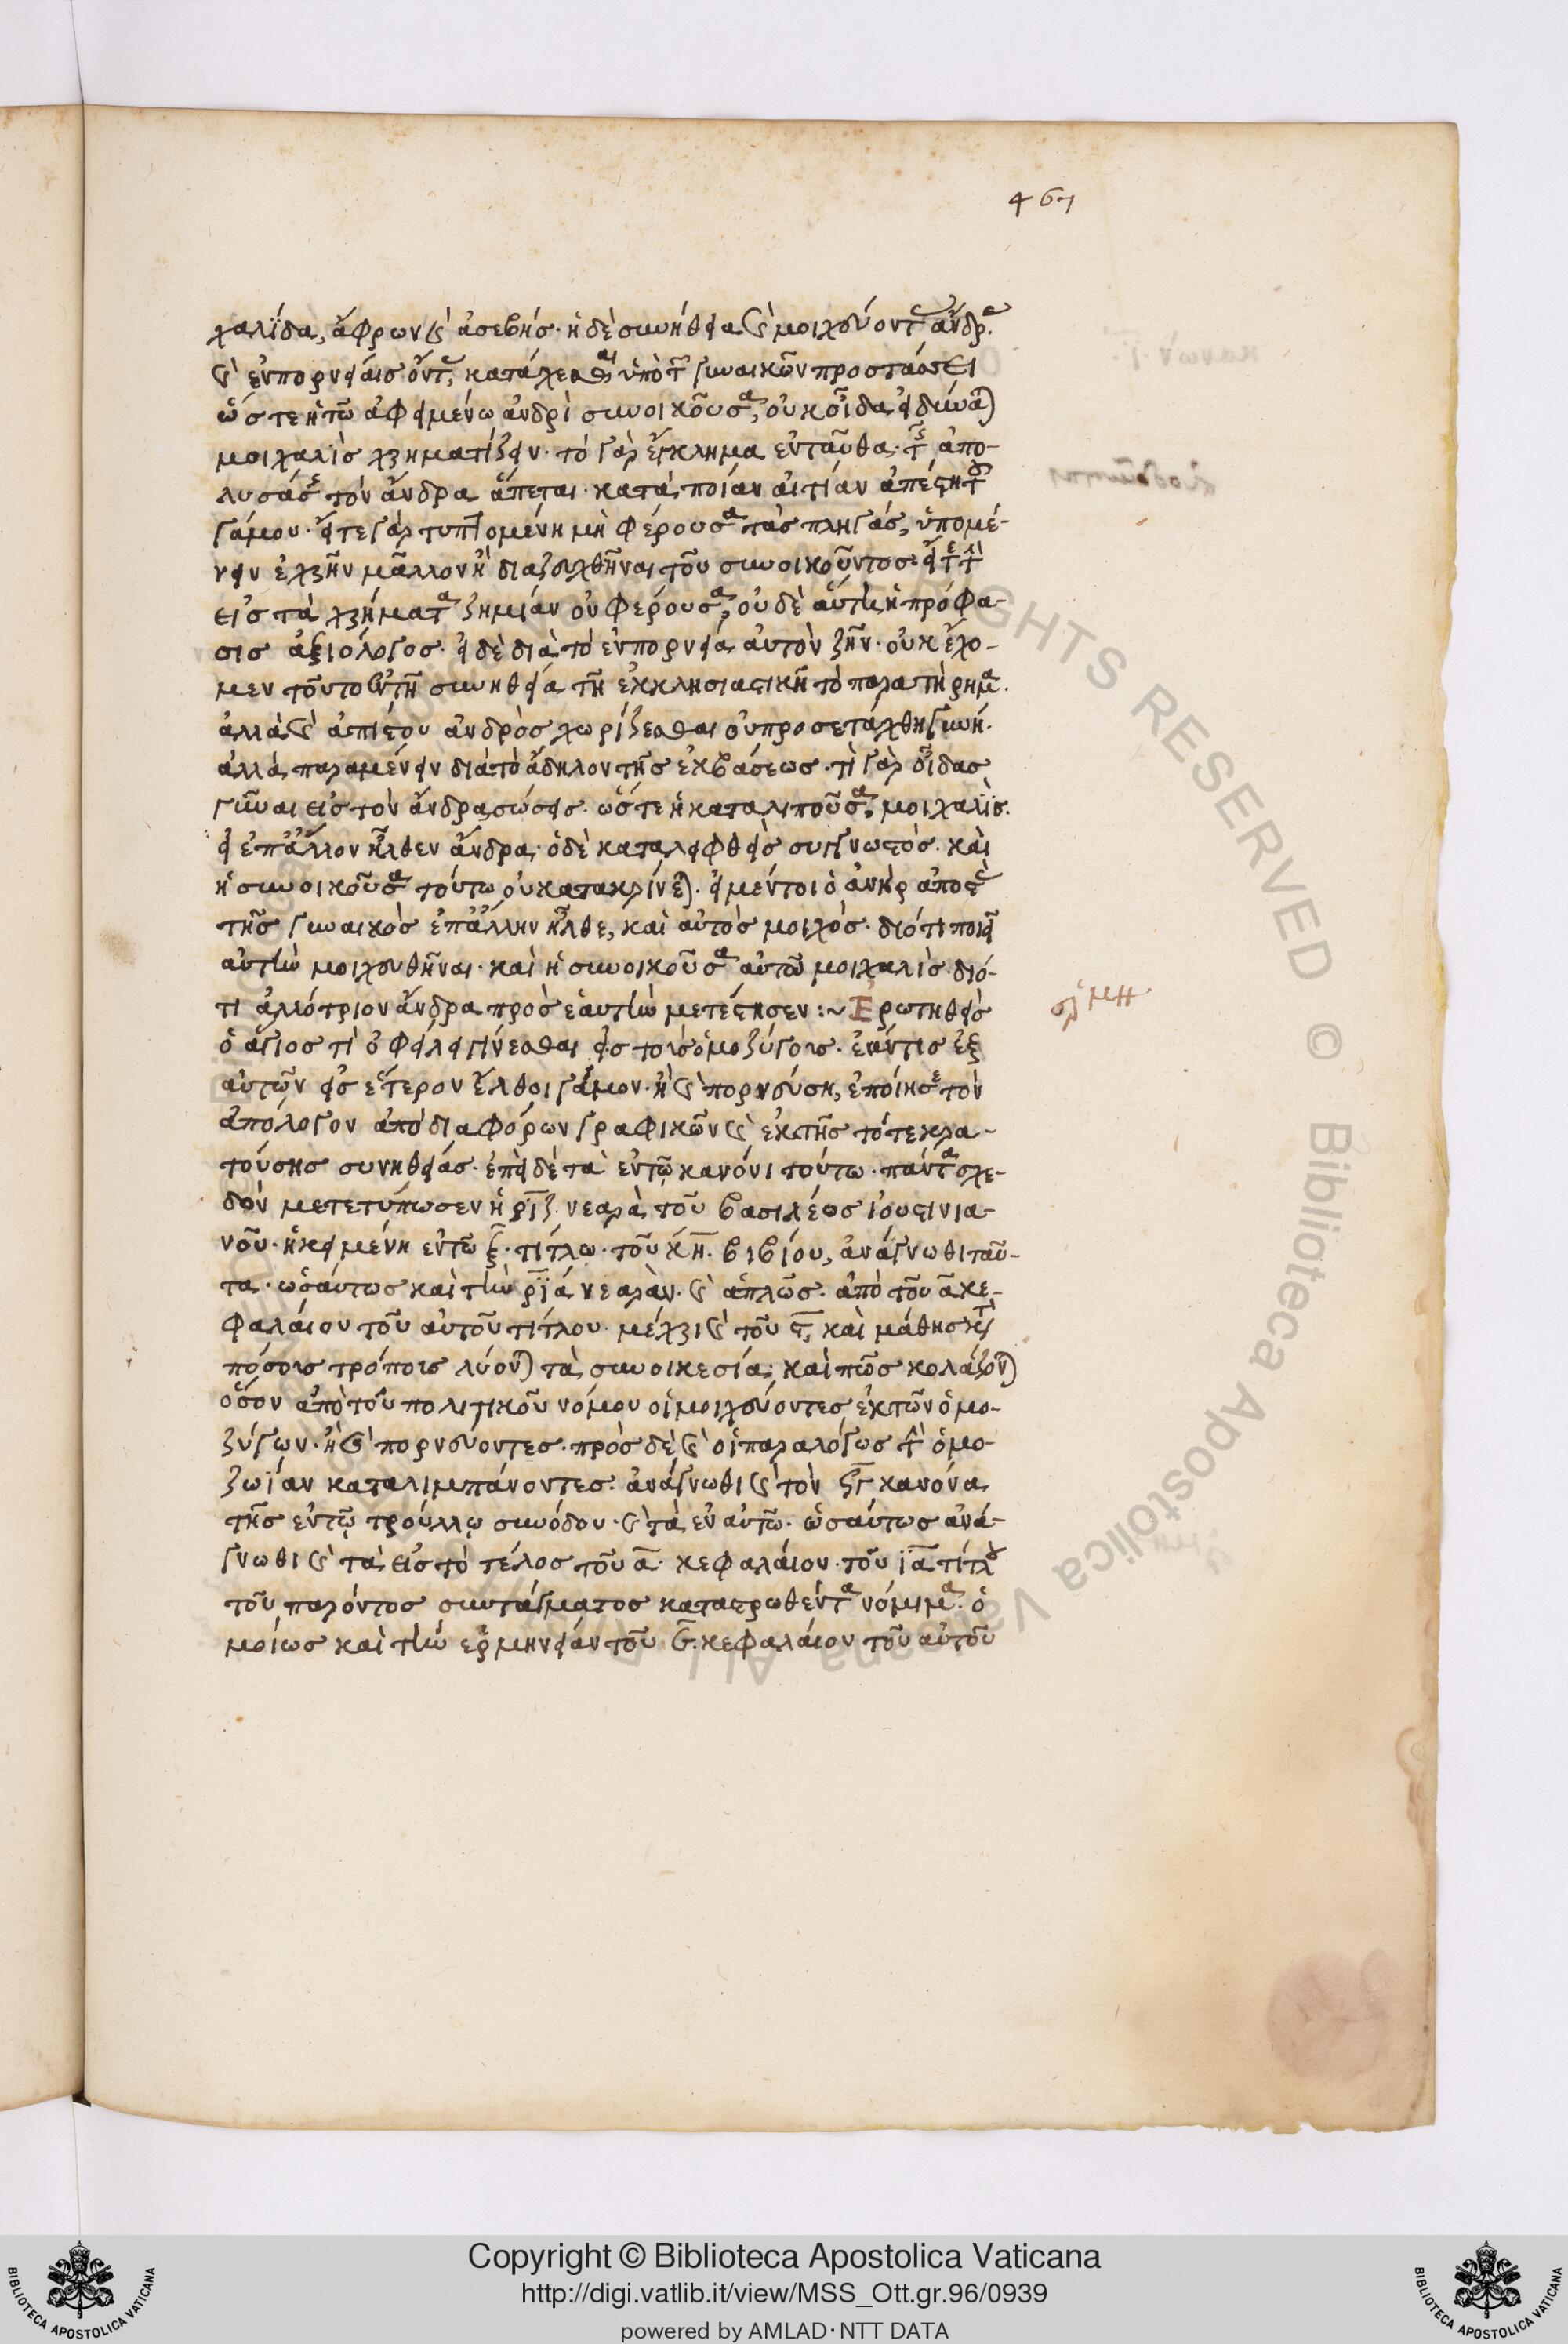 467
χαλίδα, ἄφρων καὶ ἀσεβής· ἡ δὲ συνήθεια καὶ μοιχεύοντας ἄνδρας
καὶ ἐν πορνείαις ὄντας, κατέχεσθαι ὑπὸ τῶν γυναικῶν προστάσσει
ὥστε ἡ τῶ ἀφειμένω ἀνδρὶ συνοικοῦσα, οὐκ οἶδα εἰ δύναται
μοιχαλὶς χρηματίζειν· τὸ γὰρ ἔγκλημα ἐνταῦθα τῆς ἀπο-
λυσάσης τὸν ἄνδρα ἅπτεται· κατὰ ποίαν αἰτίαν ἀπέστη τοῦ
γάμου· εἴτε γὰρ τυπτομένη μὴ φέρουσα τὰς πληγάς, ὑπομέ-
νειν ἐχρῆν μᾶλλον ἢ διαζευχθῆναι τοῦ συνοικοῦντος· εἴτε τὴν
εἰς τὰ χρήματα ζημίαν οὐ φέρουσα, οὐδὲ αὕτη ἡ πρόφα-
σις ἀξιόλογος· εἰ δὲ διὰ τὸ ἐν πορνεία αὐτὸν ζῆν· οὐκ ἔχο-
μεν τοῦτο ἐν τῆ συνηθεία τῆ ἐκκλησιαστικῆ τὸ παρατήρημα.
ἀλλὰ καὶ ἀπίστου ἀνδρὸς χωρίζεσθαι οὐ προσετάχθη γυνή.
ἀλλὰ παραμένειν διὰ τὸ ἄδηλον τῆς ἐκβάσεως· τί γὰρ οἶδας
γύναι εἰ τὸν ἄνδρα σώσεις· ὥστε ἡ καταλιποῦσα, μοιχαλίς.
εἰ ἐπ' ἄλλον ἦλθεν ἄνδρα· ὁ δὲ καταλειφθεὶς συγγνωστός· καὶ
ἡ συνοικοῦσα τούτω οὐ κατακρίνεται· εἰ μέντοι ὁ ἀνὴρ ἀποστὰς
τῆς γυναικὸς ἐπ' ἄλλην ἦλθε, καὶ αὐτὸς μοιχός· διότι ποιεῖ
αὐτὴν μοιχευθῆναι· καὶ ἡ συνοικοῦσα αὐτῶ μοιχαλίς· διό-
τι ἀλλότριον ἄνδρα πρὸς ἑαυτὴν μετέστησεν :~ Ἐρωτηθεὶς
ὁ ἅγιος τί ὀφείλει γίνεσθαι εἰς τοὺς ὁμοζύγοις· ἐάν τις ἐξ
αὐτῶν εἰς ἕτερον ἔλθοι γάμον· ἢ καὶ πορνεύση, ἐποίησε τὸν
ἀπόλογον ἀπὸ διαφόρων γραφικῶν καὶ ἐκ τῆς τότε κρα-
τούσης συνηθείας· ἐπεὶ δὲ τὰ ἐν τῶ κανόνι τούτω· πάντα σχε-
δὸν μετετύπωσεν ἡ ριζ νεαρὰ τοῦ βασιλέως ἰουστινια-
νοῦ· ἡ κειμένη ἐν τῶ ζ· τίτλω· τοῦ κη· βιβλίου, ἀνάγνωθι ταῦ-
τα· ὡσαύτως καὶ τὴν ρια νεαρὰν· καὶ ἁπλῶς· ἀπὸ τοῦ α κε-
φαλαίου τοῦ αὐτοῦ τίτλου· μέχρι καὶ τοῦ ϛ, καὶ μαθήση
πόσοις τρόποις λύονται τὰ συνοικεσία· καὶ πῶς κολάζονται
ὅσον ἀπὸ τοῦ πολιτικοῦ νόμου οἱ μοιχεύοντες ἐκ τῶν ὁμο-
ζύγων· ἢ καὶ πορνεύοντες· πρὸς δὲ καὶ οἱ παραλόγως τὴν ὁμο-
ζωΐαν καταλιμπάνοντες· ἀνάγνωθι καὶ τὸν κανόνα
τῆς ἐν τῶ τρούλλω συνόδου· καὶ τὰ ἐν αὐτῶ· ὡσαύτως ἀνά-
γνωθι καὶ τὰ εἰς τὸ τέλος τοῦ α· κεφαλαίου· τοῦ ια τίτλου
τοῦ παρόντος συντάγματος καταστρωθέντα νόμιμα· ὁ
μοίως καὶ τὴν ἑρμηνείαν τοῦ κεφαλαίου τοῦ αὐτοῦ
Copyright © Biblioteca Apostolica Vaticana
http://digi.vatlib.it/view/MSS_Ott.gr.96/0939
powered by AMLAD·NTT DATA
BIBLIOTECA APOSTOLICA VATICANA
BIBLIOTECA APOSTOLICA VATICANA